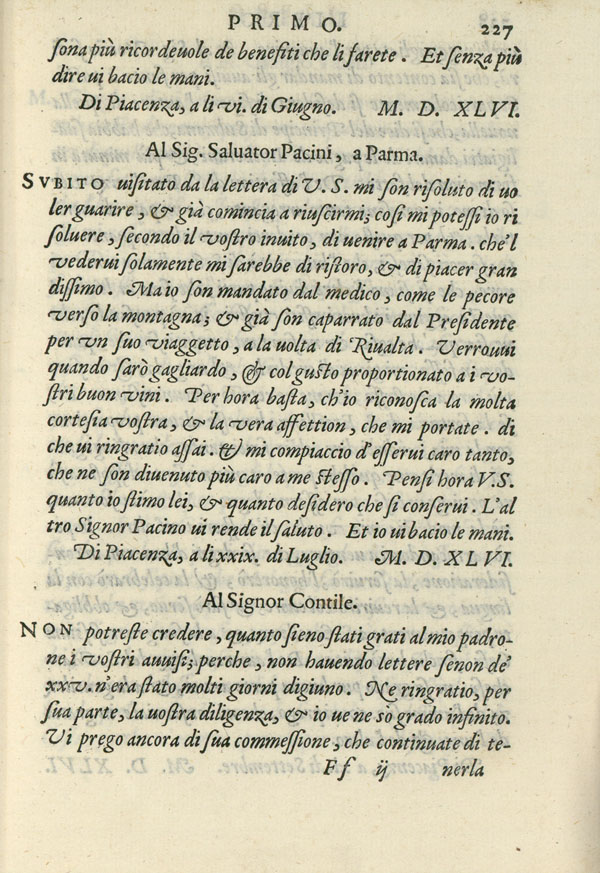 PRIMO. 227
sona più ricordeuole de benefiti che li farete. Et senza più
dire ui bacio le mani.
Di Piacenza, a li vi. di Giugno. M. D. XLVI.
Al Sig. Saluator Pacini, a Parma.
SVBITO uisitato da la lettera di V. S. mi son risoluto di uo
ler guarire, & già comincia a riuscirmi; cosi mi potessi io ri
soluere, secondo il vostro inuito, di uenire a Parma. che'l
vederui solamente mi sarebbe di ristoro, & di piacer gran
dissimo. Ma io son mandato dal medico, come le pecore
verso la montagna; & già son caparrato dal Presidente
per vn suo viaggetto, a la uolta di Riualta. Verrouui
quando sarò gagliardo, & col gusto proportionato a i vo-
stri buon vini. Per hora basta, ch'io riconosca la molta
cortesia vostra, & la vera affettion, che mi portate. di
che ui ringratio assai. & mi compiaccio d'esserui caro tanto,
che ne son diuenuto più caro a me stesso. Pensi hora V.S.
quanto io stimo lei, & quanto desidero che si conserui. L'al
tro Signor Pacino ui rende il saluto. Et io ui bacio le mani.
Di Piacenza, a li xxix. di Luglio. M. D. XLVI.
Al Signor Contile.
NON potreste credere, quanto sieno stati grati al mio padro-
ne i vostri auuisi; perche, non hauendo lettere senon de'
xxv. n'era stato molti giorni digiuno. Ne ringratio, per
sua parte, la uostra diligenza, & io ue ne sò grado infinito.
Vi prego ancora di sua commessione, che continuate di te-
Ff ij nerla